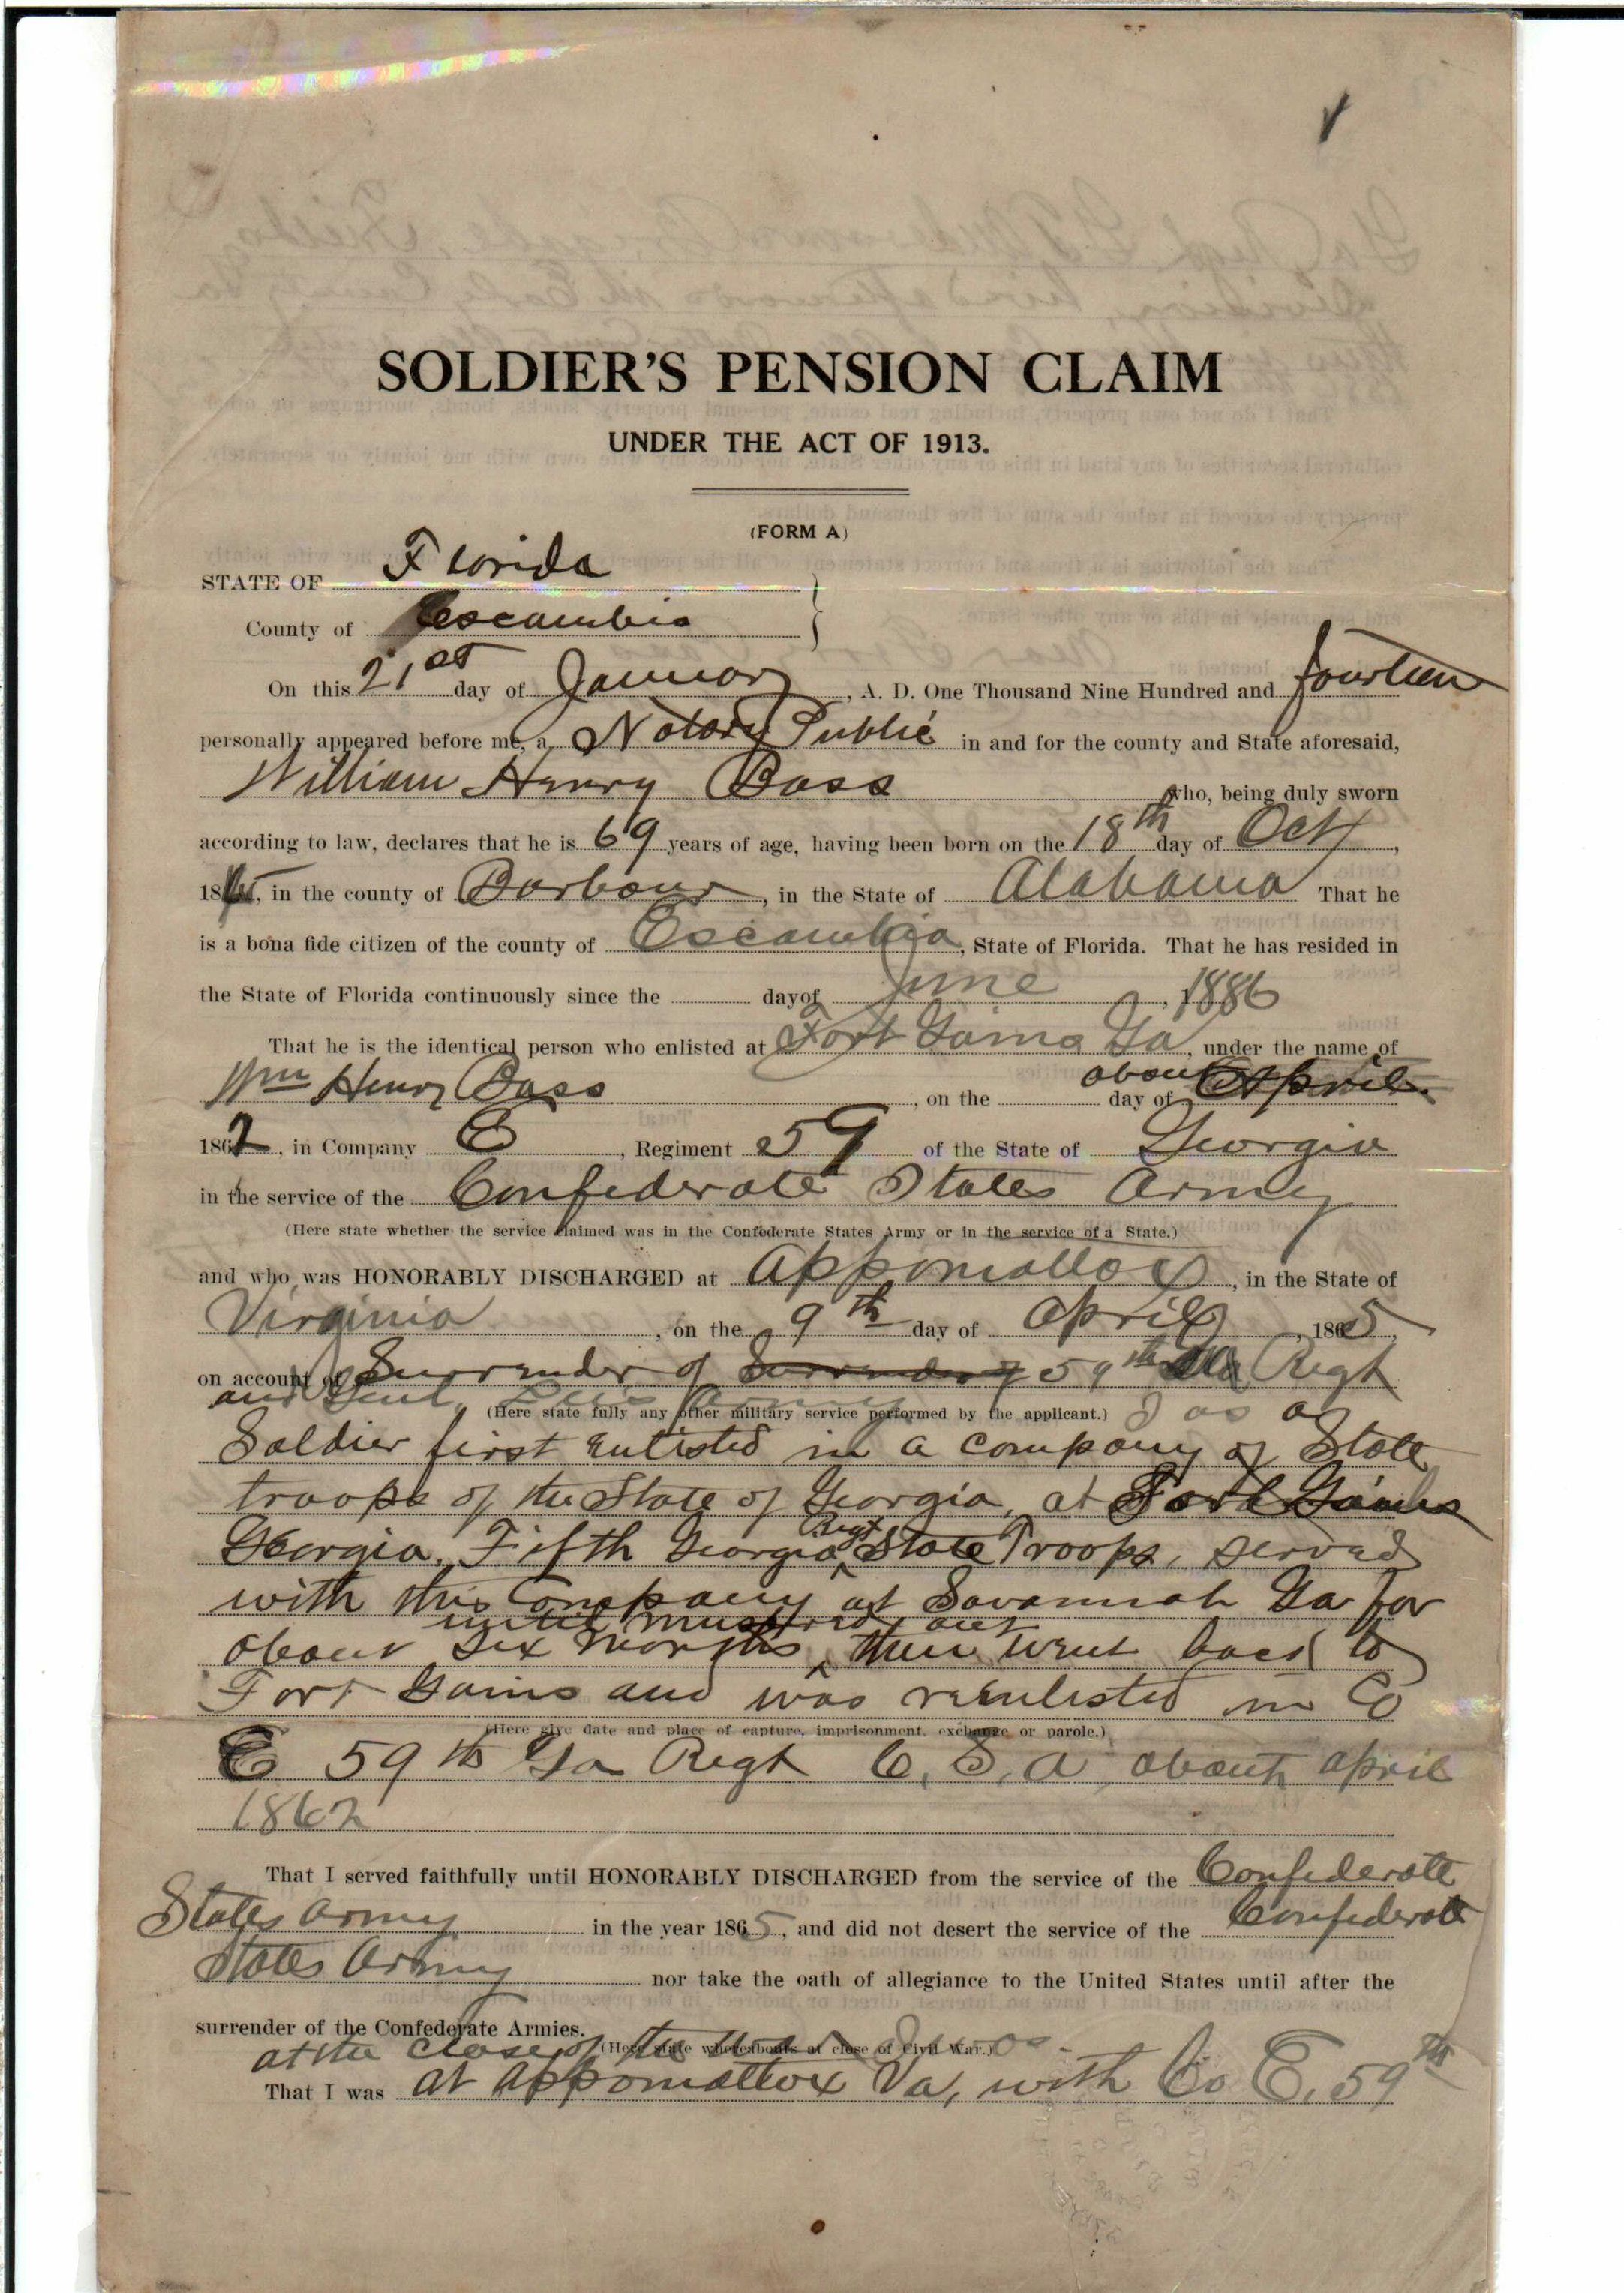 SOLDIER'S PENSION CLAIM
UNDER THE ACT OF 1913.
(FORM A)
STATE OF Florida
County of Escambia
On this 21st day of January, A. D. One Thousand Nine Hundred and fourteen
personally appeared before me, a Notary Public in and for the county and State aforesaid,
William Henry Bass who, being duly sworn
according to law, declares that he is 69 years of age, having been born on the 18th day of Oct,
18 , in the county of Barbour, in the State of Alabama That he
is a bona fide citizen of the county of Escambia, State of Florida. That he has resided in
the State of Florida continuously since the day of June, 1886
That he is the identical person who enlisted at Fort Gains Ga, under the name of
Wm Henry Bass, on the day of about April
1862, in Company E, Regiment 59 of the State of Georgia
in the service of the Confederate States Army
(Here state whether the service claimed was in the Confederate States Army or in the service of a State.)
and who was HONORABLY DISCHARGED at Appomattox, in the State of
Virginia, on the 9th day of April, 1865,
on account of Surrender of Surrender of 59th Ga Regt
and Genl Lee's Army
(Here state fully any other military service performed by the applicant.) I as a
Soldier first Enlisted in a company of State
troops of the State of Georgia, at Fort Gaines
Georgia, Fifth Georgia Regt State Troops, served
with this Company at Savannah Ga for
about six months until mustered out, then went back to
Fort Gains and was reenlisted in Co
(Here give date and place of capture, imprisonment, exchange or parole.)
E 59th Ga Regt C. S. A about April
1862
That I served faithfully until HONORABLY DISCHARGED from the service of the Confederate
States Army in the year 1865, and did not desert the service of the Confederate
States Army nor take the oath of allegiance to the United States until after the
surrender of the Confederate Armies.
at the close of the (Here state whereabouts at close of Civil War.)
That I was at Appomattox Va, with Co E, 59th